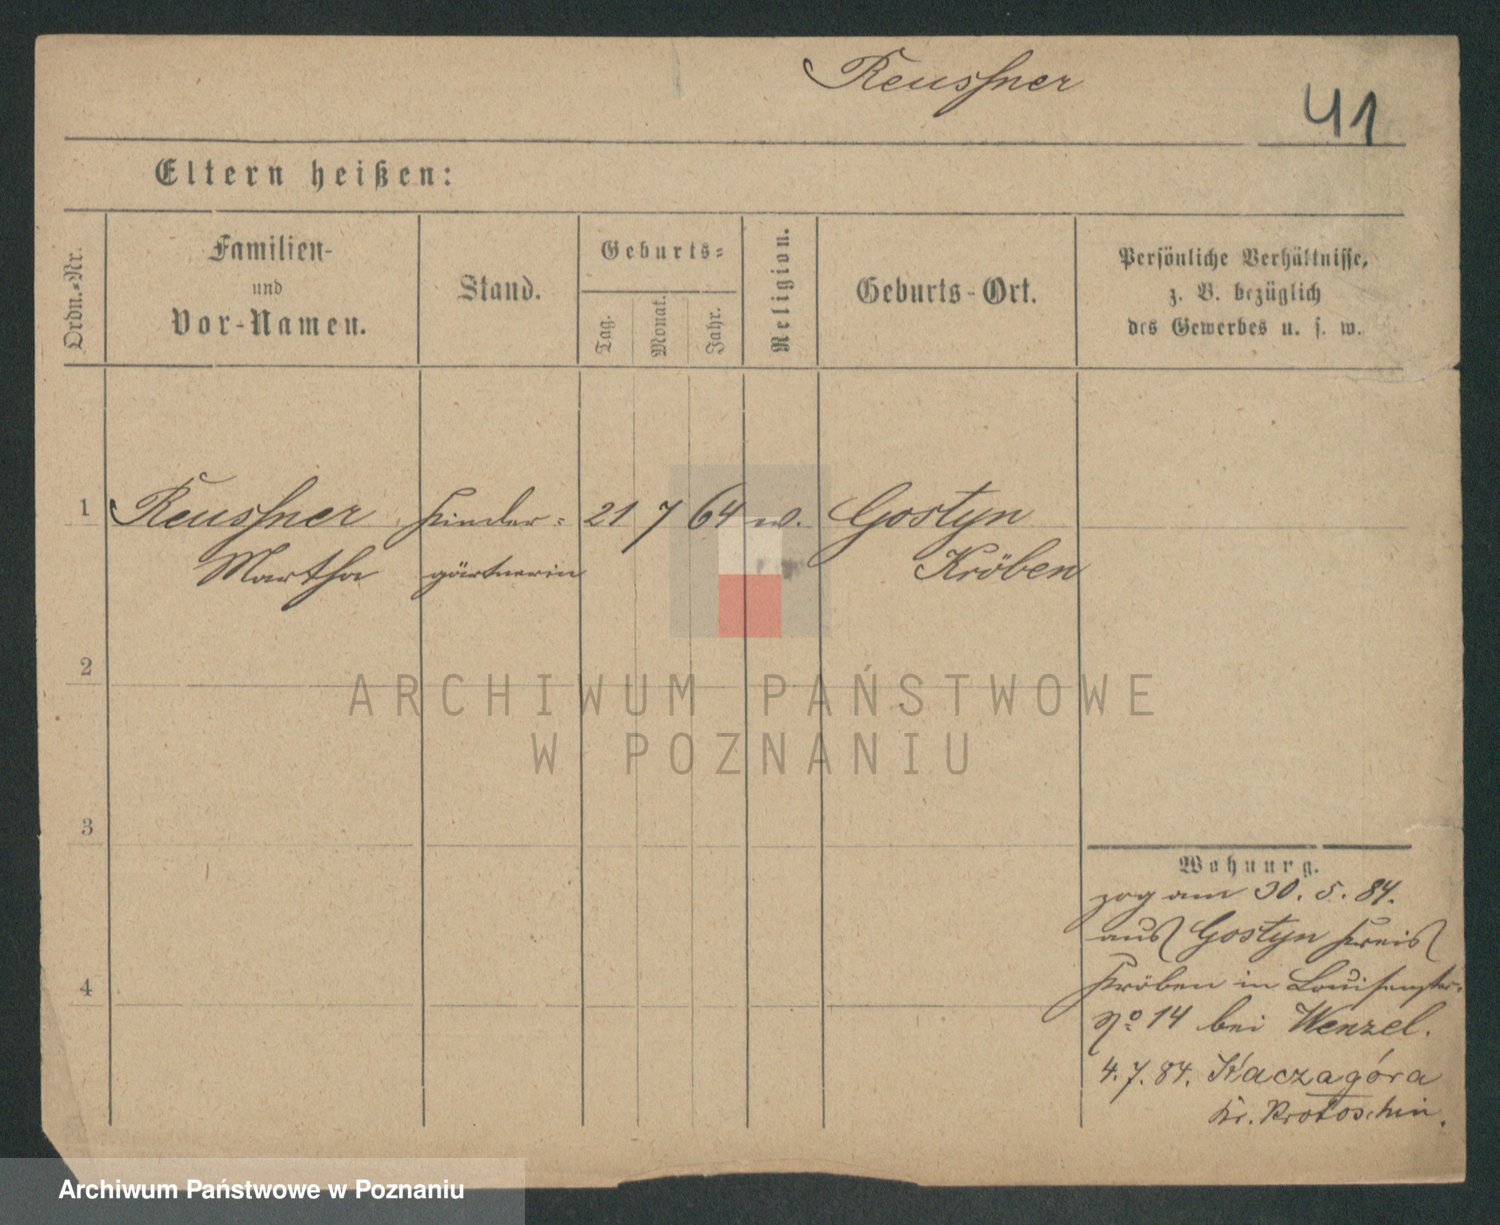 Reussner
41
Eltern heißen:
Ordn.-Nr.
Familien-
und
Vor-Namen.
Stand.
Geburts-
Tag.
Monat.
Jahr.
Religion.
Geburts-Ort.
Persönliche Verhältnisse,
z. B. bezüglich
des Gewerbes u. s. w.
1 Reussner Kinder- 21 7 64 Gostyn
Martha gärtnerin Kröben
2
ARCHIWUM PAŃSTWOWE
W POZNANIU
3
4
Wohnung.
zog am 30. 5. 84.
aus Gostyn Kreis
Kröben in Louisenstr.
No. 14 bei Wenzel.
4. 7. 84. Kaczagóra
Kr. Krotoschin.
Archiwum Państwowe w Poznaniu